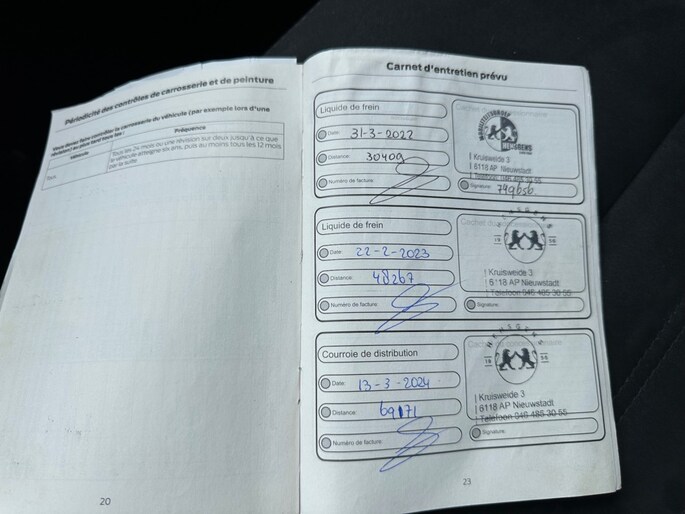 Périodicité des contrôles de carrosserie et de peinture
Vous devez faire contrôler la carrosserie du véhicule (par exemple lors d'une
révision) au plus tard tous les :
Véhicule
Fréquence
Tous
Tous les 24 mois ou une révision sur deux jusqu'à ce que
le véhicule atteigne six ans, puis au moins tous les 12 mois
par la suite
20
Carnet d'entretien prévu
Liquide de frein
Date: 31-3-2022
Distance: 30409
Numéro de facture:
HENSGENS
Kruisweide 3
6118 AP Nieuwstadt
Telefoon 046 485 30 55
Signature:
Liquide de frein
Date: 22-2-2023
Distance: 48267
Numéro de facture:
HENSGENS
19 56
Kruisweide 3
6118 AP Nieuwstadt
Telefoon 046 485 30 55
Signature:
Courroie de distribution
Date: 13-3-2024
Distance: 69171
Numéro de facture:
HENSGENS
19 56
Kruisweide 3
6118 AP Nieuwstadt
Telefoon 046 485 30 55
Signature:
23